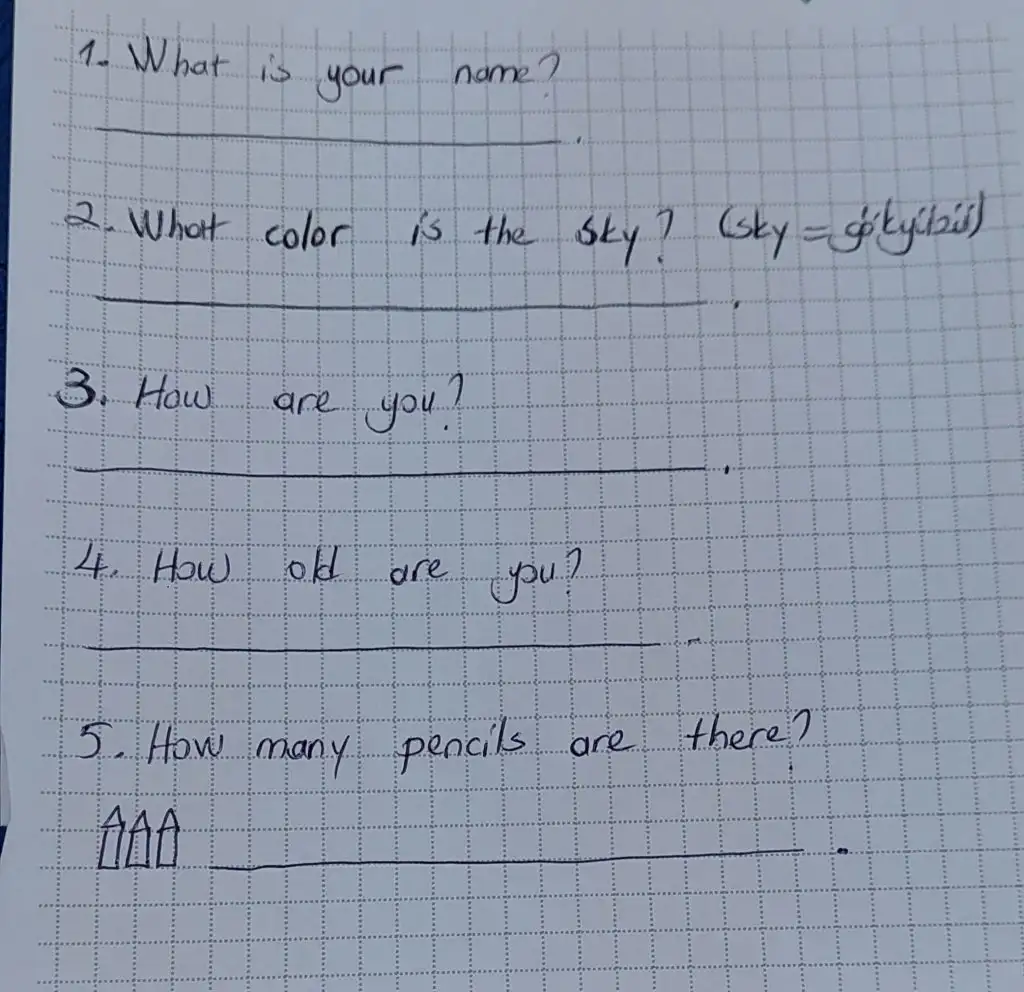 1. What is your name?
2. What color is the sky? (sky = gökyüzü)
3. How are you?
4. How old are you?
5. How many pencils are there?